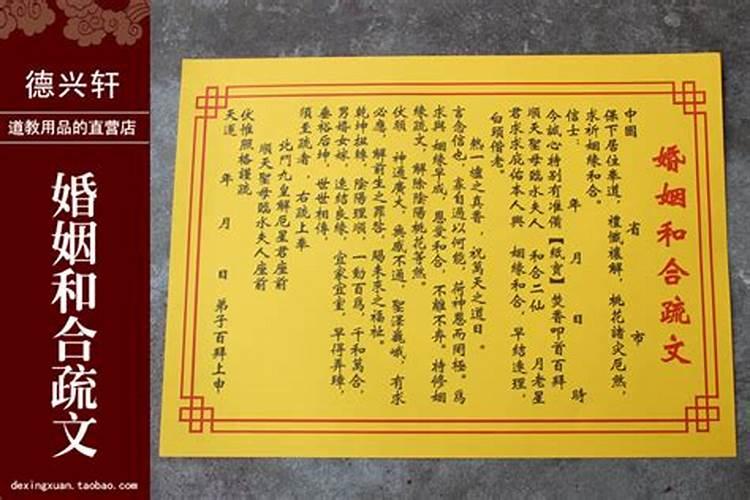 德兴轩
道教用品的直营店
婚姻和合疏文
dexingxuan.taobao.com
婚姻和合疏文
中國 省 市
保下居住奉道，禮懺禳解，桃花諸灾厄煞，
求祈姻緣和合。
信士： 年 月 日 時
今誠心特别有准備【紙寳】焚香叩首百拜
順天聖母臨水夫人 和合二仙 月老星
君求求庇佑本人與 姻緣和合，早結連理，
白頭偕老。
熱一爐之真香，祝萬天之道日。
言念信也，拿自過以何能，荷神恩而罔極。爲
求與 姻緣早成，恩愛和合，不離不弃。特修姻
緣疏文，解除陰陽桃花等煞。
伏願 神通廣大，無感不通，聖澤巍峨，有求
必應，解前生之罪咎，賜未來之福祉。
乾坤扭轉，陰陽理順，一動百爲，千和萬合，
男婚女嫁，速結良緣，宜家宜室，早得弄璋，
垂裕后坤，世世相傳，
須至疏者，右疏上奉
北鬥九皇解厄星君座前
順天聖母臨水夫人座前
伏惟照格謹疏
天運 年 月 日 弟子百拜上申